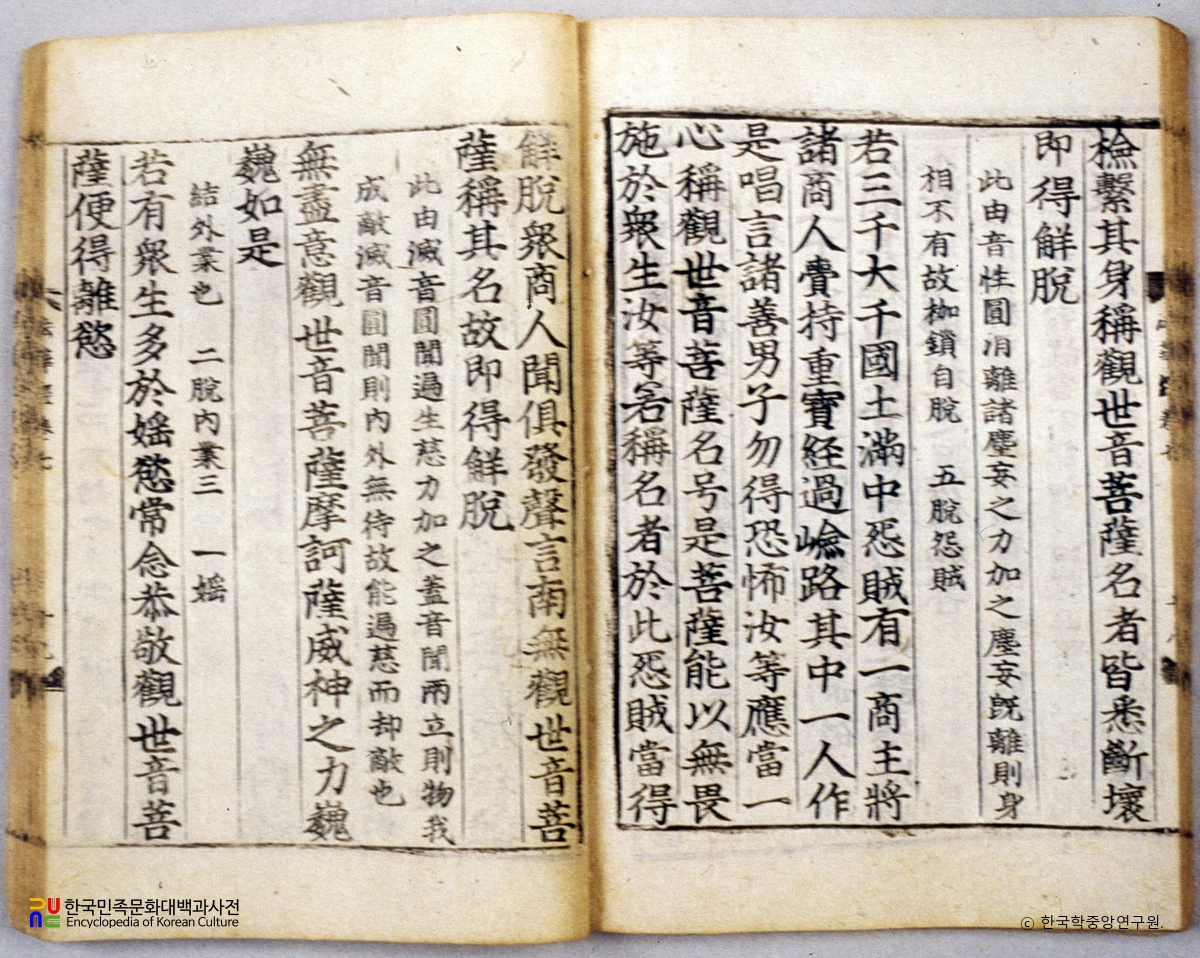 檢繫其身稱觀世音菩薩名者皆悉斷壞
即得觧脫
此由音性圓消離諸塵妄之力加之塵妄旣離則身
相不有故枷鎖自脫 五脫怨賊
若三千大千國土滿中怨賊有一商主將
諸商人賷持重寶経過嶮路其中一人作
是唱言諸善男子勿得恐怖汝等應當一
心稱觀世音菩薩名号是菩薩能以無畏
施於衆生汝等若稱名者於此怨賊當得
觧脫衆商人聞俱發聲言南無觀世音菩
薩稱其名故即得觧脫
此由滅音圓聞遍生慈力加之蓋音聞兩立則物我
成敵滅音圓聞則內外無待故能遍慈而却敵也
無盡意觀世音菩薩摩訶薩威神之力巍
巍如是
結外業也 二脫內業三 一婬
若有衆生多於婬慾常念恭敬觀世音菩
薩便得離慾
法華經卷七
한국민족문화대백과사전
Encyclopedia of Korean Culture
© 한국학중앙연구원.